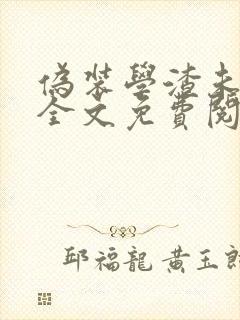 偽裝學渣未
全文免費閱
邱福龍 黃玉郎